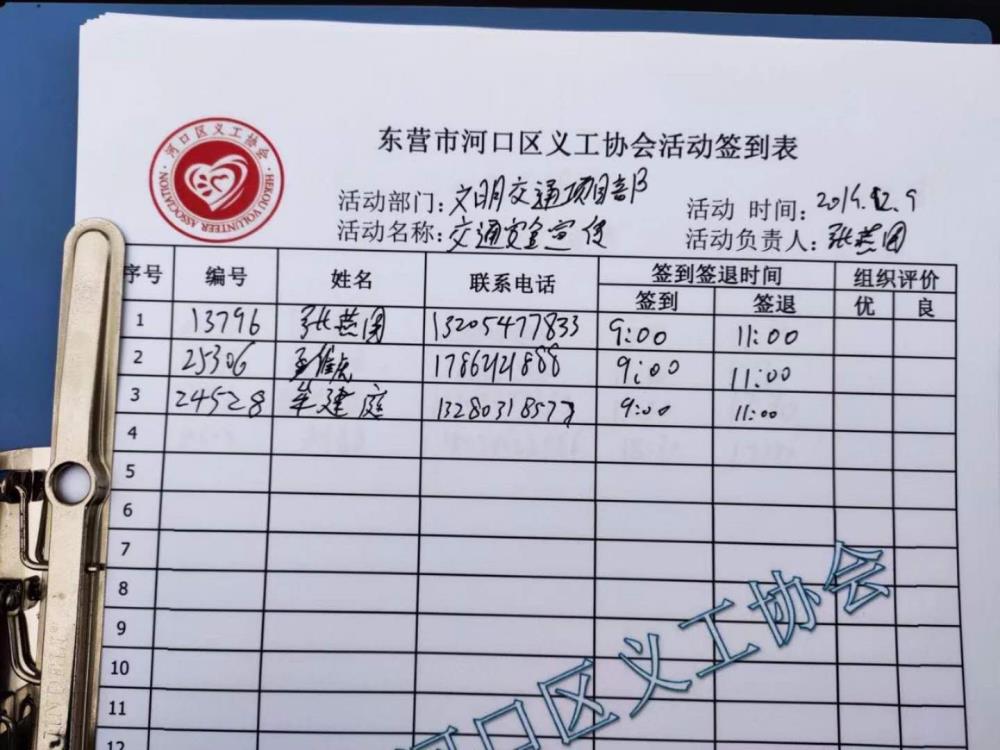 东营市河口区义工协会活动签到表
河口区义工协会
HEKOU VOLUNTEER ASSOCIATION
活动部门：文明交通项目部 活动 时间：2019.12.9
活动名称：交通安全宣传 活动负责人：张燕团
序号 编号 姓名 联系电话 签到签退时间 组织评价
签到 签退 优 良
1 13796 张燕团 13205477833 9:00 11:00
2 25306 17862121888 9:00 11:00
3 24528 牟建庭 13280318577 9:00 11:00
4
5
6
7
8
9
10
11
12
河口区义工协会